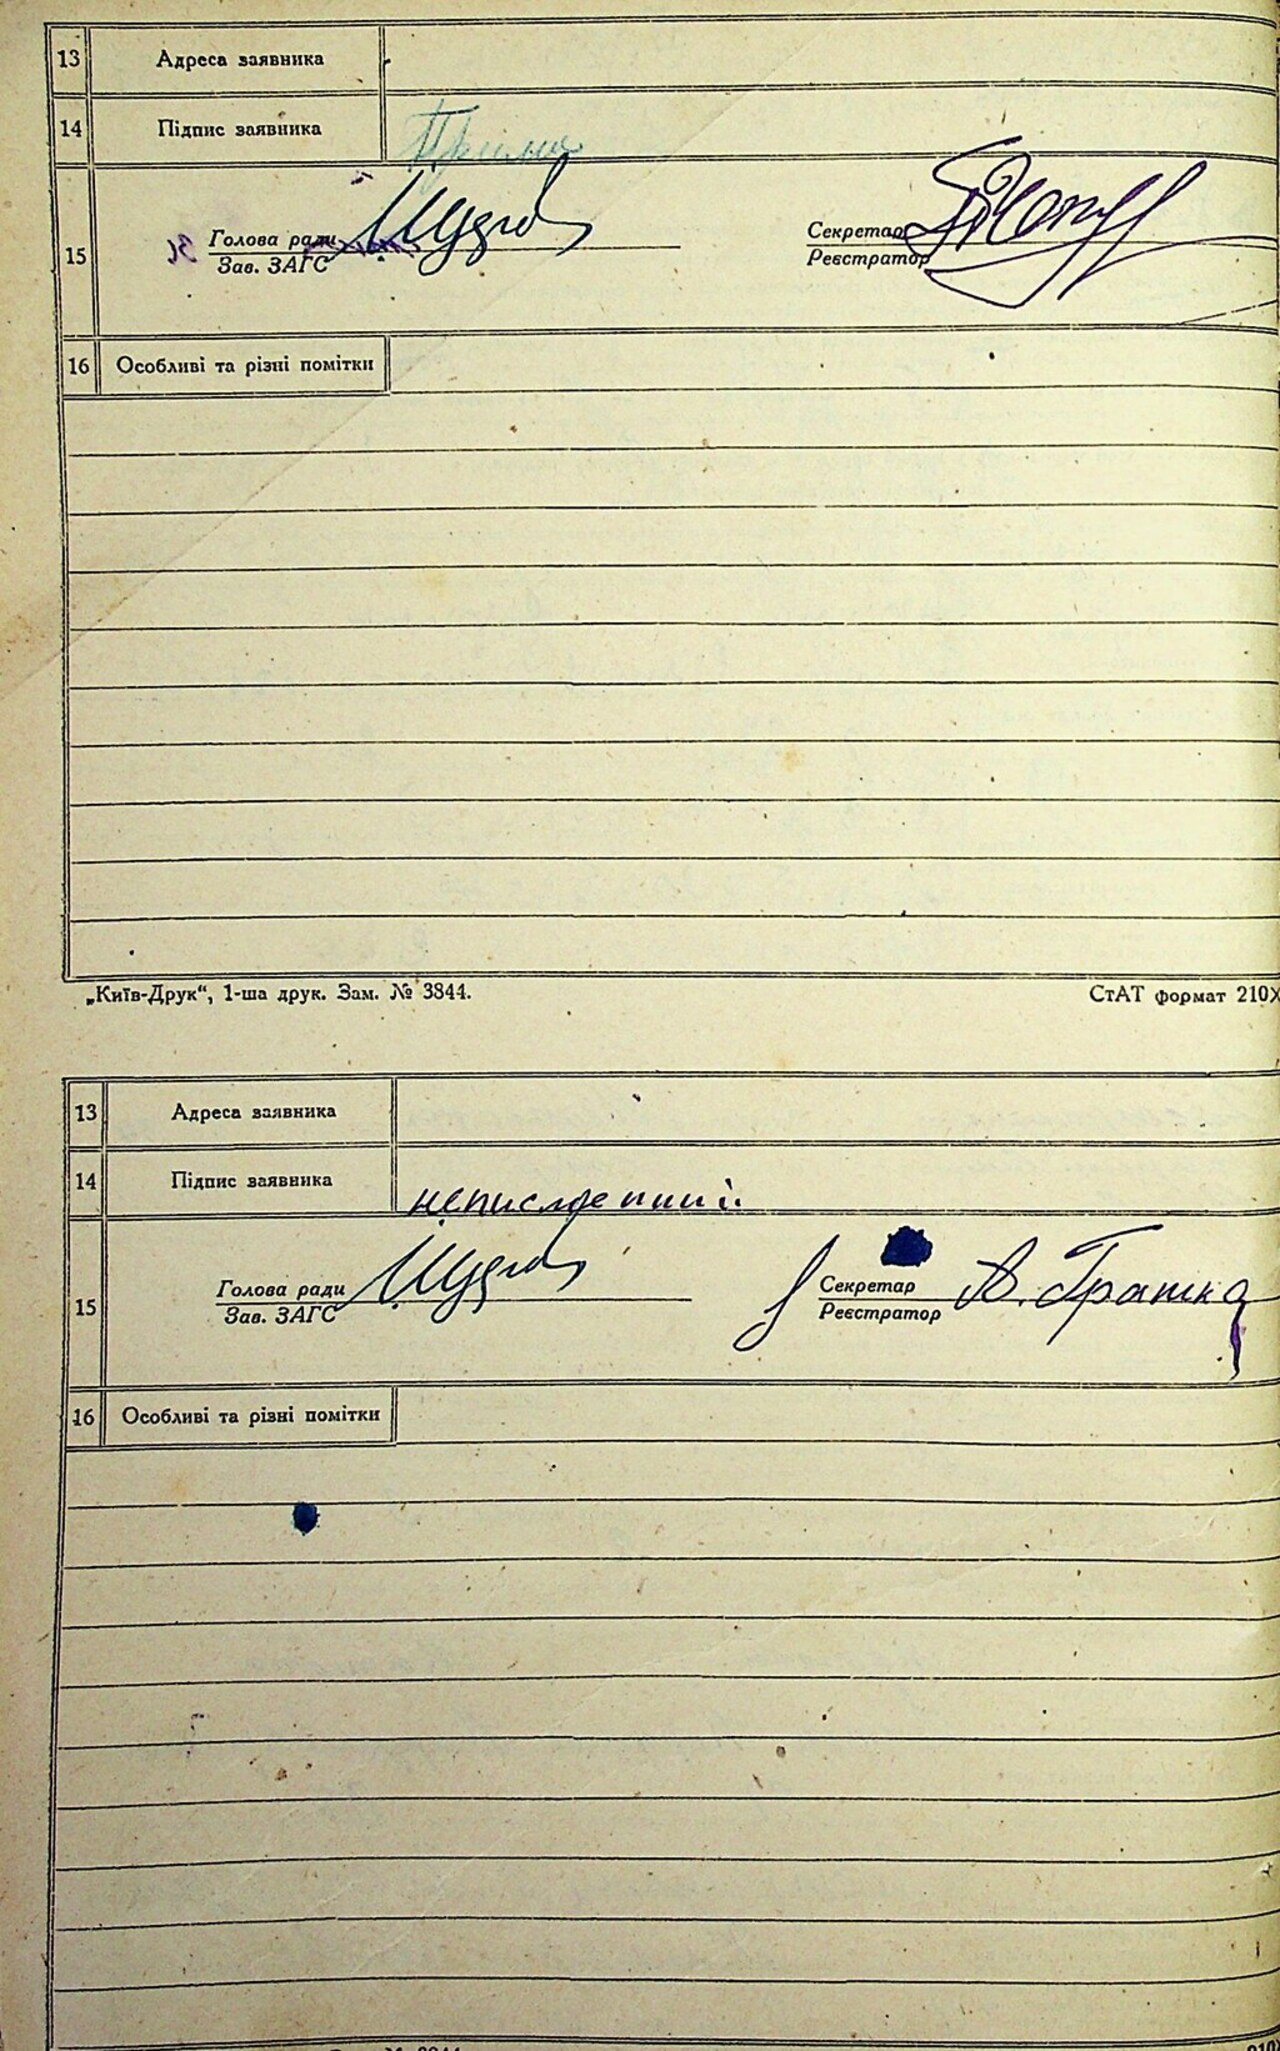 13 Адреса заявника
14 Підпис заявника
15 Голова ради Секретар
Зав. ЗАГС Реєстратор
16 Особливі та різні помітки
„Київ-Друк“, 1-ша друк. Зам. № 3844. СтАТ формат 210X
13 Адреса заявника
14 Підпис заявника неписьменний
15 Голова ради Секретар А. Грашка
Зав. ЗАГС Реєстратор
16 Особливі та різні помітки